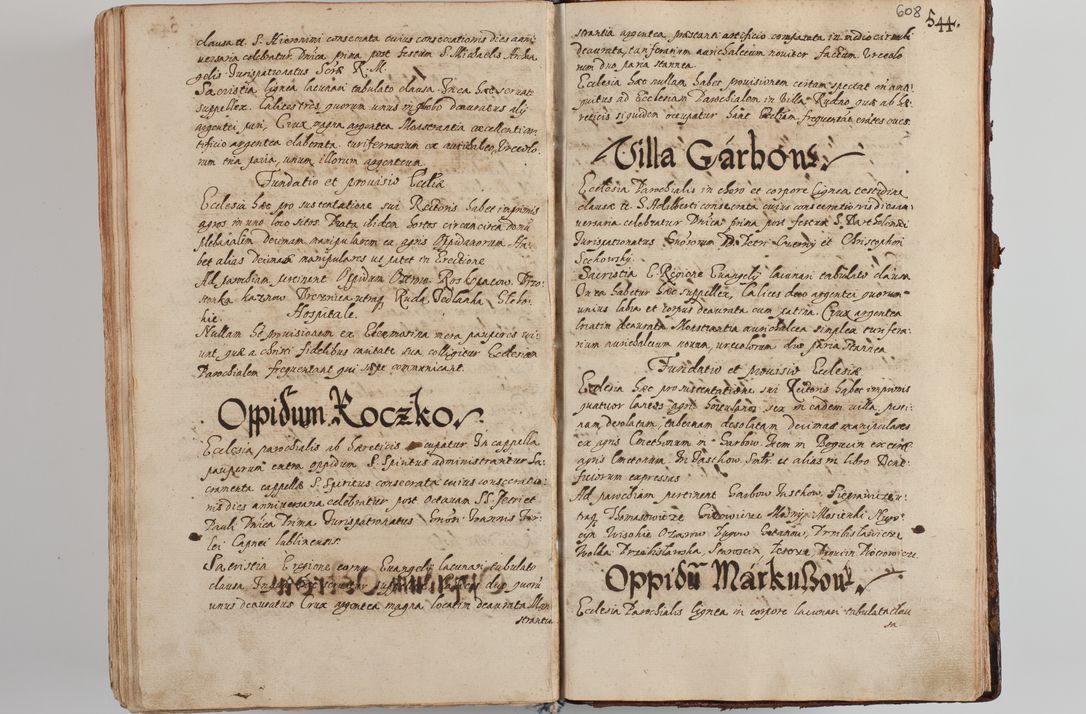 clausa tt. S. Hieronimi consecrata cuius consecrationis dies anni
uersaria celebratur Dnica prima post festum S. Michaelis Archan
gelis Jurispatronatus Scrae R. M.
Sacristia lignea lacunari tabulato clausa In ea haec seruatur
suppellex. Calices tres quorum unus in globo deauratus alij
argentei puri, Crux magna argentea Monstrantia excellenti ar
tificio argentea elaborata turiferarium ex aurichalceo, Urceolo
rum tria paria, unum illorum argenteum.
Fundatio et prouisio Eccliae
Ecclesia haec pro sustentatione sui Rectoris habet inprimis
agros in uno loco sitos. Prata ibidem hortos circumcirca domum
plebanalem decimam manipularem ex agris Oppidanorum. Ha
bet alias decimas manipulares ut patet in Erectione
Ad parochiam pertinent Oppidum
Hospitale.
Nullam habet prouisionem ex Eleemosina mera pauperes vi
uunt, quae a christi fidelibus caritate sua colligitur Ecclesiam
Parochialem frequentant qui saepe communicant.
Oppidum Roczko
Ecclesia parochialis ab haereticis occupatur In cappella
pauperum extra oppidum S. Spiritus administrantur Sa
cramenta cappella S. Spiritus consecrata cuius consecratio
nis dies anniversaria celebratur post Octauam S.S. Petri et
Pauli Dnica Prima Jurispatronatus Gnosi Joannis Fir
lei Capnei lublinensis.
Sacristia E regione cornu Euangelij lacunari tabulato
clausa In ea haec seruatur suppellex Calices duo quorum
unus deauratus Crux argentea magna localim deaurata Mon
strantia
608
544.
strantia argentea, praestanti artificio comparata in medio circumli
deaurata, turiferarium aurichalceum nouiter factum Urceolo
rum duo paria stannea.
Ecclesia haec nullam habet prouisionem certam spectat enim anti
quitus ad Ecclesiam Parochialem in Villa Rudno quae ab hae
reticis siquidem occupatur hanc Eccliam frequentant eiusdem oues.
Villa Garbow
Ecclesia Parochialis in choro et corpore Lignea testudine
clausa tt. S. Adalberti consecrata cuius consecrationis dies an
niuersaria celebratur Dnica prima post festum S. Bartholomei
Jurispatronatus Gnosorum DD. Petri et Christophori
Sacristia E Regione Euangelij lacunari tabulato clausa
In ea habetur haec suppellex, Calices duo argentei quorum
unius labia et corpus deaurata cum patina. Crux argentea
localim deaurata Monstrantia aurichalcea simplex turifera
rium aurichalceum nouum, urceolorum duo paria stannea
Fundatio et prouisio Ecclesiae
Ecclesia haec pro sustentatione sui Rectoris habet inprimis
quatuor laneos agri hortulanos sex in eadem uilla, pisci
nam desolatam, tabernam desolatam decimas manipulares
ex agris Cmethonum in Garbow. Item in Bogucin ex certis
agris Cmetonum In Jaschow Smtr. et alias in libro Bene
ficiorum expressas
Ad parochiam pertinent Garbow Jaschow, Sieprawicze u
traq Thomasowicze
Wolka
Oppidum Markuszow
Ecclesia Parochialis Lignea in corpore lacunari tabulata clau
sa